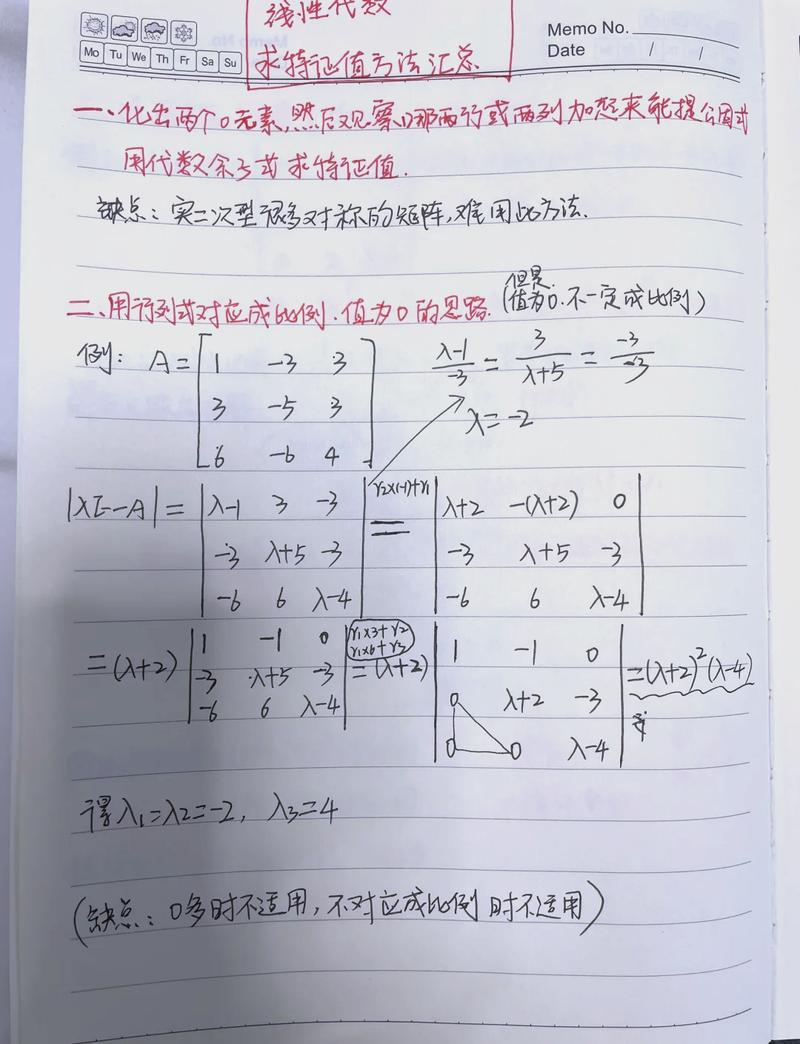 线性代数
求特征值方法汇总
Memo No.
Date / /
Mo Tu We Th Fr Sa Su
一、化出两个0元素,然后观察,哪两行或两列加起来能提公因式
用代数余子式求特征值.
缺点：实二次型很多对称的矩阵,难用此方法.
二、用行列式对应成比例.值为0的思路. (但是值为0.不一定成比例)
例: A= [1 -3 3
3 -5 3
6 -6 4]
λ-1/-3 = 3/λ+5 = -3/-3
λ=-2
|λE-A| = |λ-1 3 -3
-3 λ+5 -3
-6 6 λ-4|
r2×(-1)+r1
= |λ+2 -(λ+2) 0
-3 λ+5 -3
-6 6 λ-4|
=(λ+2) |1 -1 0
-3 λ+5 -3
-6 6 λ-4|
r1×3+r2
r1×6+r3
=(λ+2) |1 -1 0
0 λ+2 -3
0 0 λ-4|
=(λ+2)²(λ-4)
得λ1=λ2=-2, λ3=4
(缺点：0多时不适用,不对应成比例时不适用)